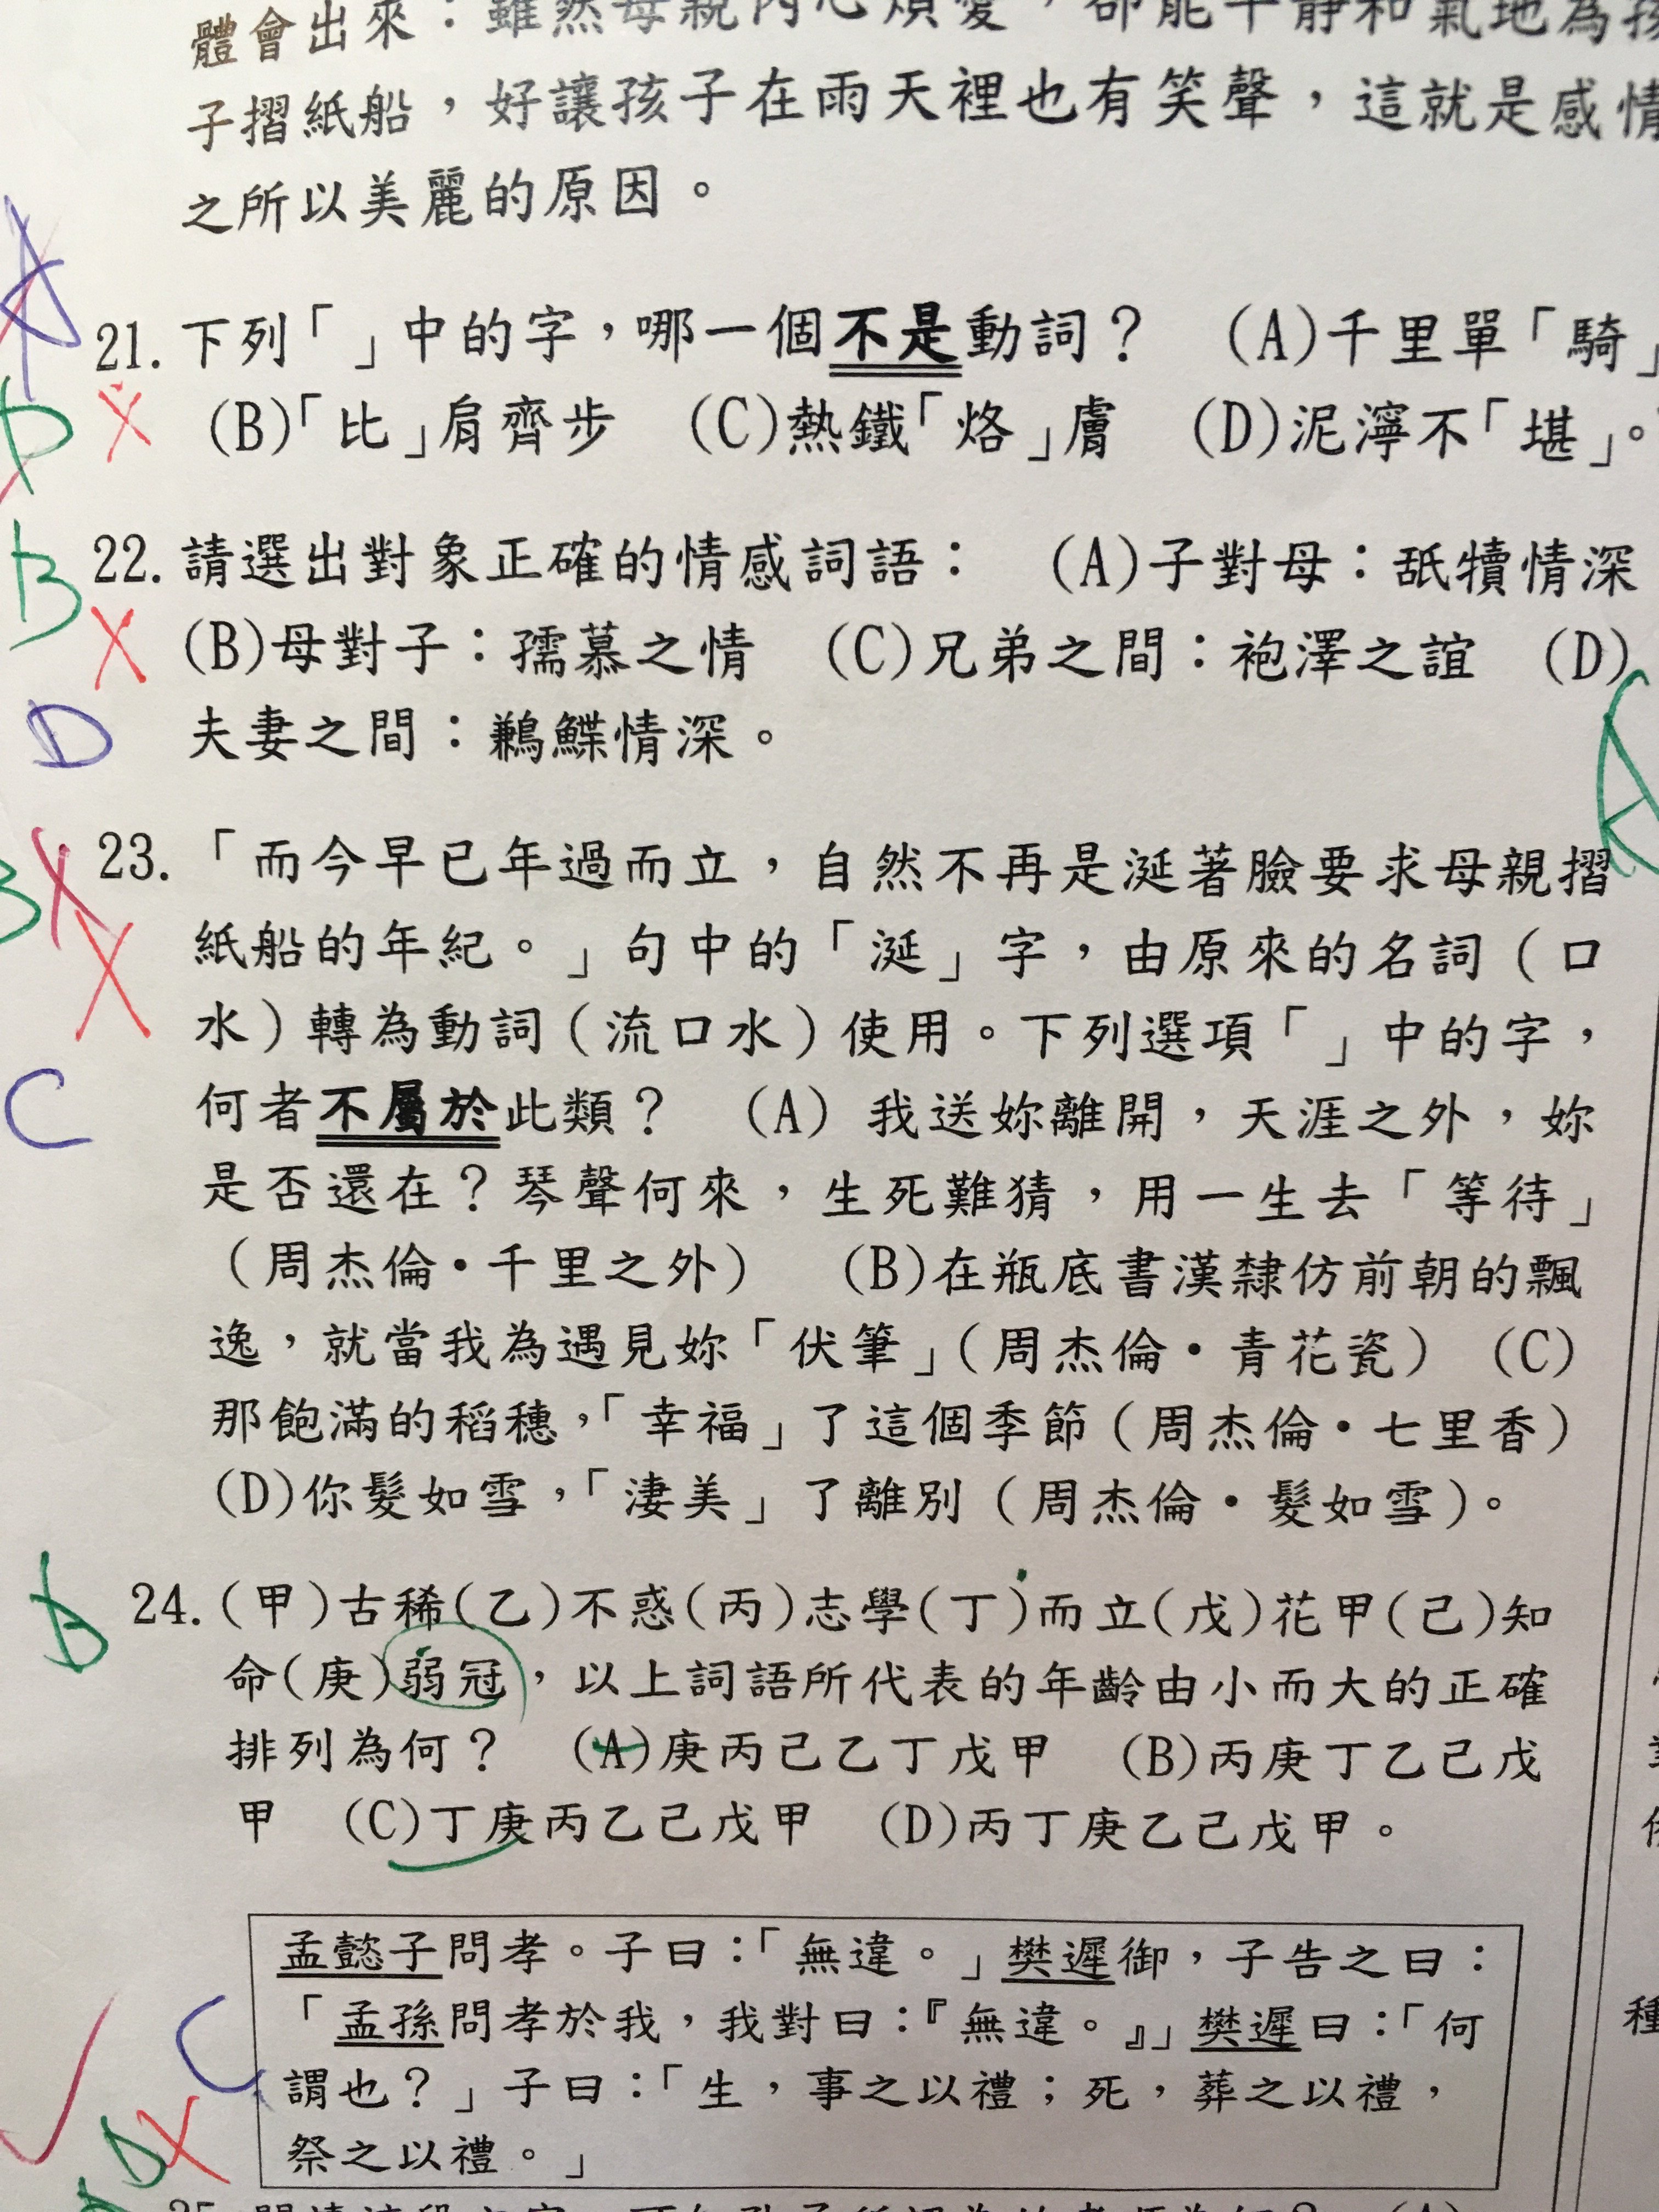 體會出來：雖然母親內心煩憂，卻能平靜和氣地為孩
子摺紙船，好讓孩子在雨天裡也有笑聲，這就是感情
之所以美麗的原因。
A
21.下列「」中的字，哪一個不是動詞？ (A)千里單「騎」
D X (B)「比」肩齊步 (C)熱鐵「烙」膚 (D)泥濘不「堪」。
B 22.請選出對象正確的情感詞語： (A)子對母：舐犢情深
X (B)母對子：孺慕之情 (C)兄弟之間：袍澤之誼 (D)
D 夫妻之間：鶼鰈情深。
A
B X 23.「而今早已年過而立，自然不再是涎著臉要求母親摺
紙船的年紀。」句中的「涎」字，由原來的名詞（口
水）轉為動詞（流口水）使用。下列選項「」中的字，
C 何者不屬於此類？ (A) 我送妳離開，天涯之外，妳
是否還在？琴聲何來，生死難猜，用一生去「等待」
（周杰倫•千里之外） (B)在瓶底書漢隸仿前朝的飄
逸，就當我為遇見妳「伏筆」（周杰倫•青花瓷） (C)
那飽滿的稻穗，「幸福」了這個季節（周杰倫•七里香）
(D)你髮如雪，「淒美」了離別（周杰倫•髮如雪）。
B 24.(甲)古稀(乙)不惑(丙)志學(丁)而立(戊)花甲(己)知
命(庚)弱冠，以上詞語所代表的年齡由小而大的正確
排列為何？ (A)庚丙己乙丁戊甲 (B)丙庚丁乙己戊
甲 (C)丁庚丙乙己戊甲 (D)丙丁庚乙己戊甲。
孟懿子問孝。子曰：「無違。」樊遲御，子告之曰：
「孟孫問孝於我，我對曰：『無違。』」樊遲曰：「何
C 謂也？」子曰：「生，事之以禮；死，葬之以禮，
D X 祭之以禮。」
種